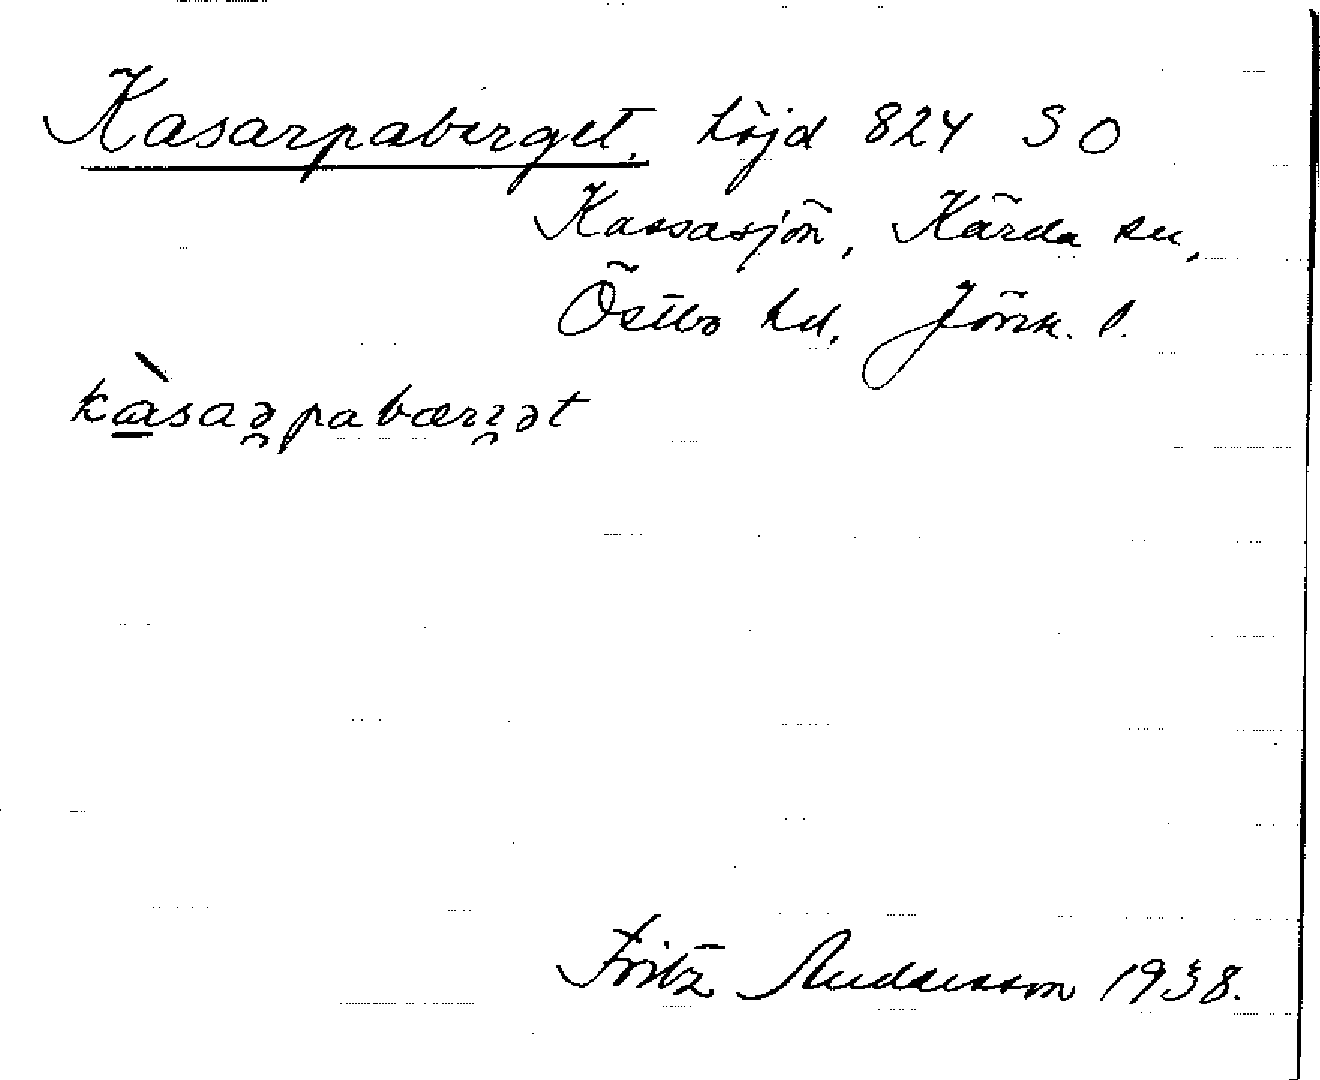 Kasarpaberget. höjd 824 SO
Kassasjön, Kärda sn,
Östbo hd, Jönk. l.
kàsaə̯pabærɪ̯ət
Fritz Andersson 1938.